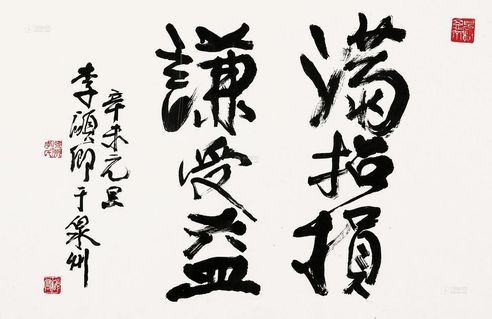 滿招損
謙受益
辛未元旦
李碩卿于泉州